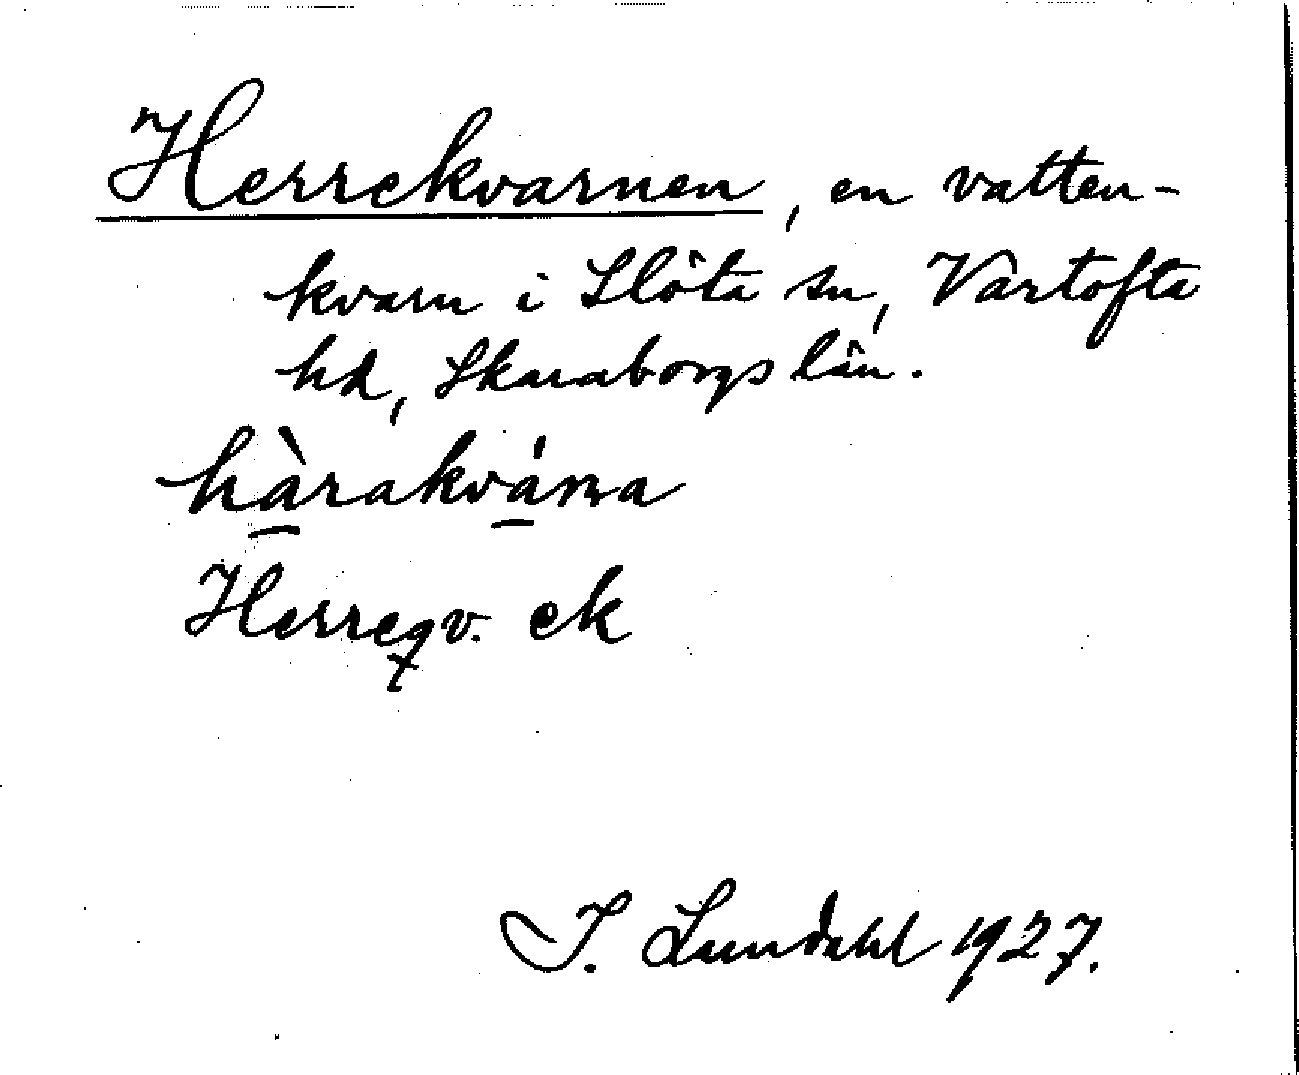 Herrekvarnen, en vatten-
kvarn i Slöta sn, Vartofta
hd, Skaraborgs län.
hàrakvána
Herreqv. ek
I. Lundahl 1927.